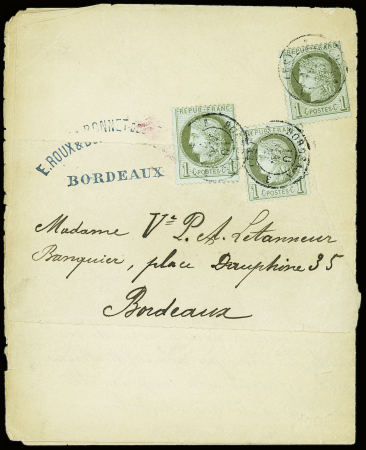 REPUB·FRANC·
1 POSTES 1
REPUB·FRANC·
1 C·POSTES·C· 1
REPUB·FRANC·
1 C·POSTES·C· 1
BONNET
E. ROUX &
BORDEAUX
Madame Ve P. A. Letanneur
Banquier, place Dauphine 35
Bordeaux